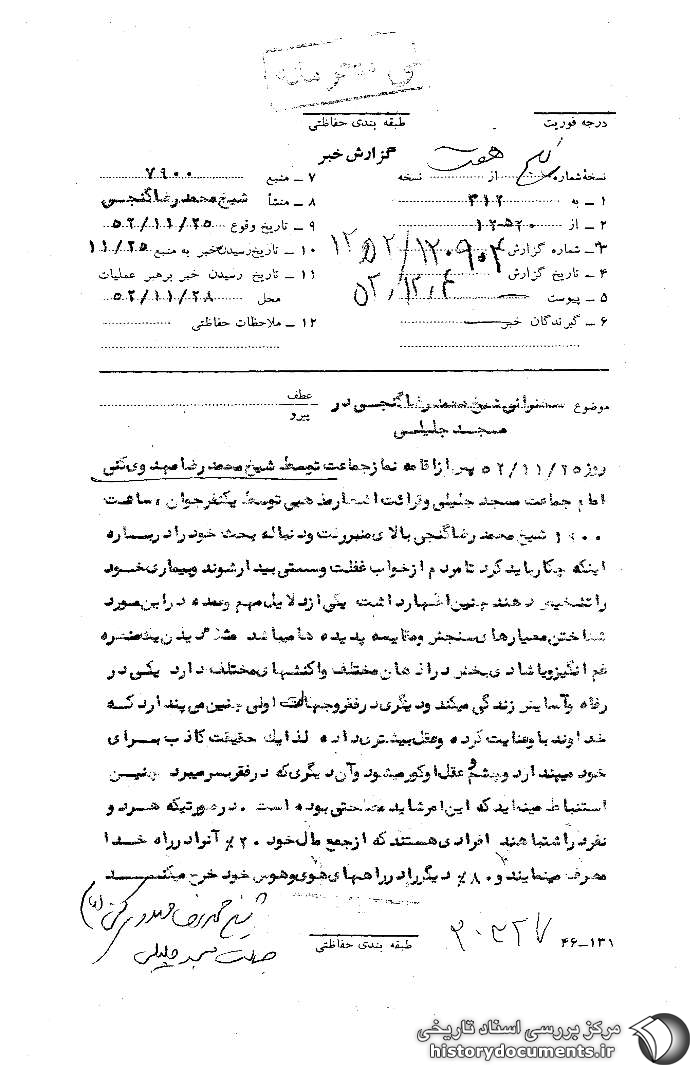 خیلی محرمانه
درجه فوریت
طبقه بندی حفاظتی
گزارش خبر
نسخه شماره یکم از هفت نسخه
۱ – به ۳۱۲
۲ – از ۱۲۵۲۰
۳ – شماره گزارش ۱۲۵۲/۱۲۰۹۰۴
۴ – تاریخ گزارش ۵۲/۱۲/۴
۵ – پیوست
۶ – گیرندگان خبر
۷ – منبع ۷۹۰۰
۸ – منشأ شیخ محمد رضا گنجی
۹ – تاریخ وقوع ۵۲/۱۱/۲۵
۱۰ – تاریخ رسیدن خبر به منبع ۱۱/۲۵
۱۱ – تاریخ رسیدن خبر برهبر عملیات
محل ۵۲/۱۱/۲۸
۱۲ – ملاحظات حفاظتی
موضوع سخنرانی شیخ محمد رضا گنجی در
مسجد جلیلی
عطف
پیرو
روز ۵۲/۱۱/۲۵ پس از اقامه نماز جماعت توسط شیخ محمد رضا مهدوی کنی
امام جماعت مسجد جلیلی و قرائت اشعار مذهبی توسط یکنفر جوان ، ساعت
شیخ محمد رضا گنجی بالای منبر رفت و دنباله بحث خود را درباره
اینکه چکار باید کرد تا مردم از خواب غفلت و سستی بیدار شوند و بیماری خود
را تشخیص دهند چنین اظهار داشت یکی از دلایل مهم و عمده در این مورد
شناختن معیارهای سنجش و مقایسه پدیده ها میباشد مثلا دیدن یک منظره
غم انگیز و یا شادی بخش در اذهان مختلف واکنشهای مختلف دارد یکی در
رفاه و آسایش زندگی میکند و دیگری در فقر و جهالت اولی چنین می پندارد که
خداوند با و عنایت کرده و عقل بیشتری داده لذا یک حقیقت کاذب برای
خود میپندارد و چشم و عقل او کور میشود و آن دیگری که در فقر بسر میبرد چنین
استنباط مینماید که این امر شاید مصلحتی بوده است . در صورتیکه هر دو
نفر در اشتباهند افرادی هستند که از جمع مال خود ۲۰٪ آنرا در راه خدا
مصرف مینمایند و ۸۰٪ دیگر را در راههای هوی و هوس خود خرج میکنند
طبقه بندی حفاظتی
۴۶–۱۳۱
شیخ محمد رضا مهدوی کنی
مسجد جلیلی
مرکز بررسی اسناد تاریخی
historydocuments.ir